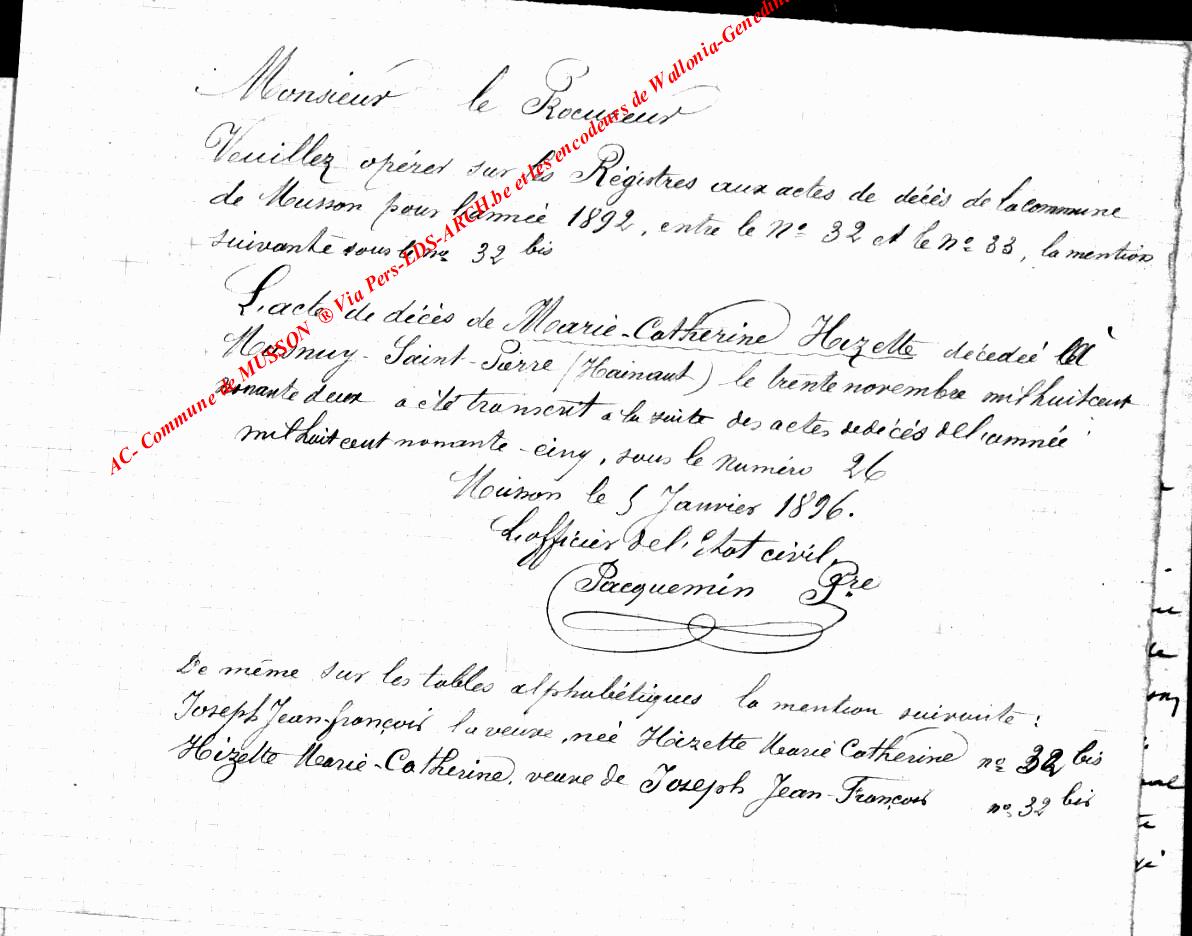 Monsieur le Procureur
Veuillez opérer sur les Régistres aux actes de décès de la commune
de Musson pour l'année 1892, entre le Nº 32 et le Nº 33, la mention
suivante sous le nº 32 bis
L'acte de décès de Marie-Catherine Hizette décédée à
Masnuy-Saint-Pierre (Hainaut) le trente novembre mil huit cent
nonante deux a été transcrit à la suite des actes de décès de l'année
mil huit cent nonante-cinq, sous le numéro 26
Musson le 5 Janvier 1896.
L'officier de l'Etat civil,
Jacquemin Pre
De même sur les tables alphabétiques la mention suivante :
Joseph Jean-françois la veuve, née Hizette Marie Catherine nº 32 bis
Hizette Marie-Catherine, veuve de Joseph Jean-François nº 32 bis
AC- Commune de MUSSON ® Via Pers-EDS-ARCH.be et les encodeurs de Wallonia-